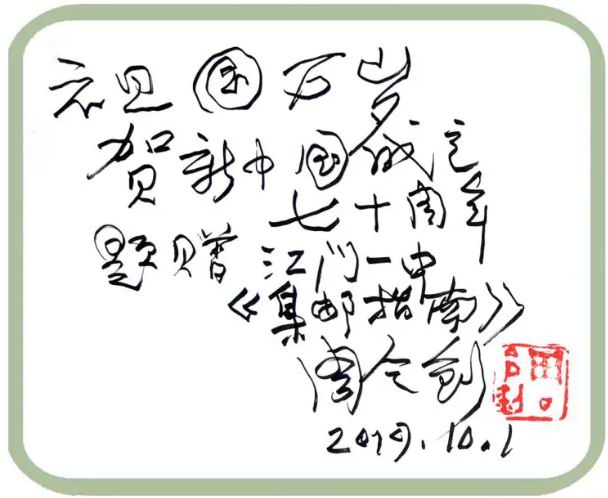 祖国万岁
贺新中国成立
七十周年
题赠江门一中
《集邮指南》
周令钊
2019.10.1